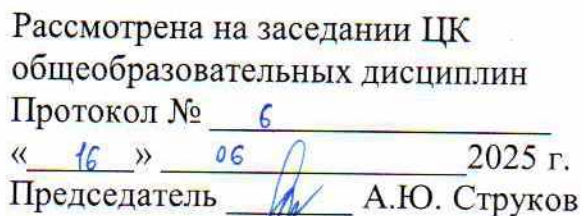 Рассмотрена на заседании ЦК
общеобразовательных дисциплин
Протокол № 6
« 16 » 06 2025 г.
Председатель А.Ю. Струков